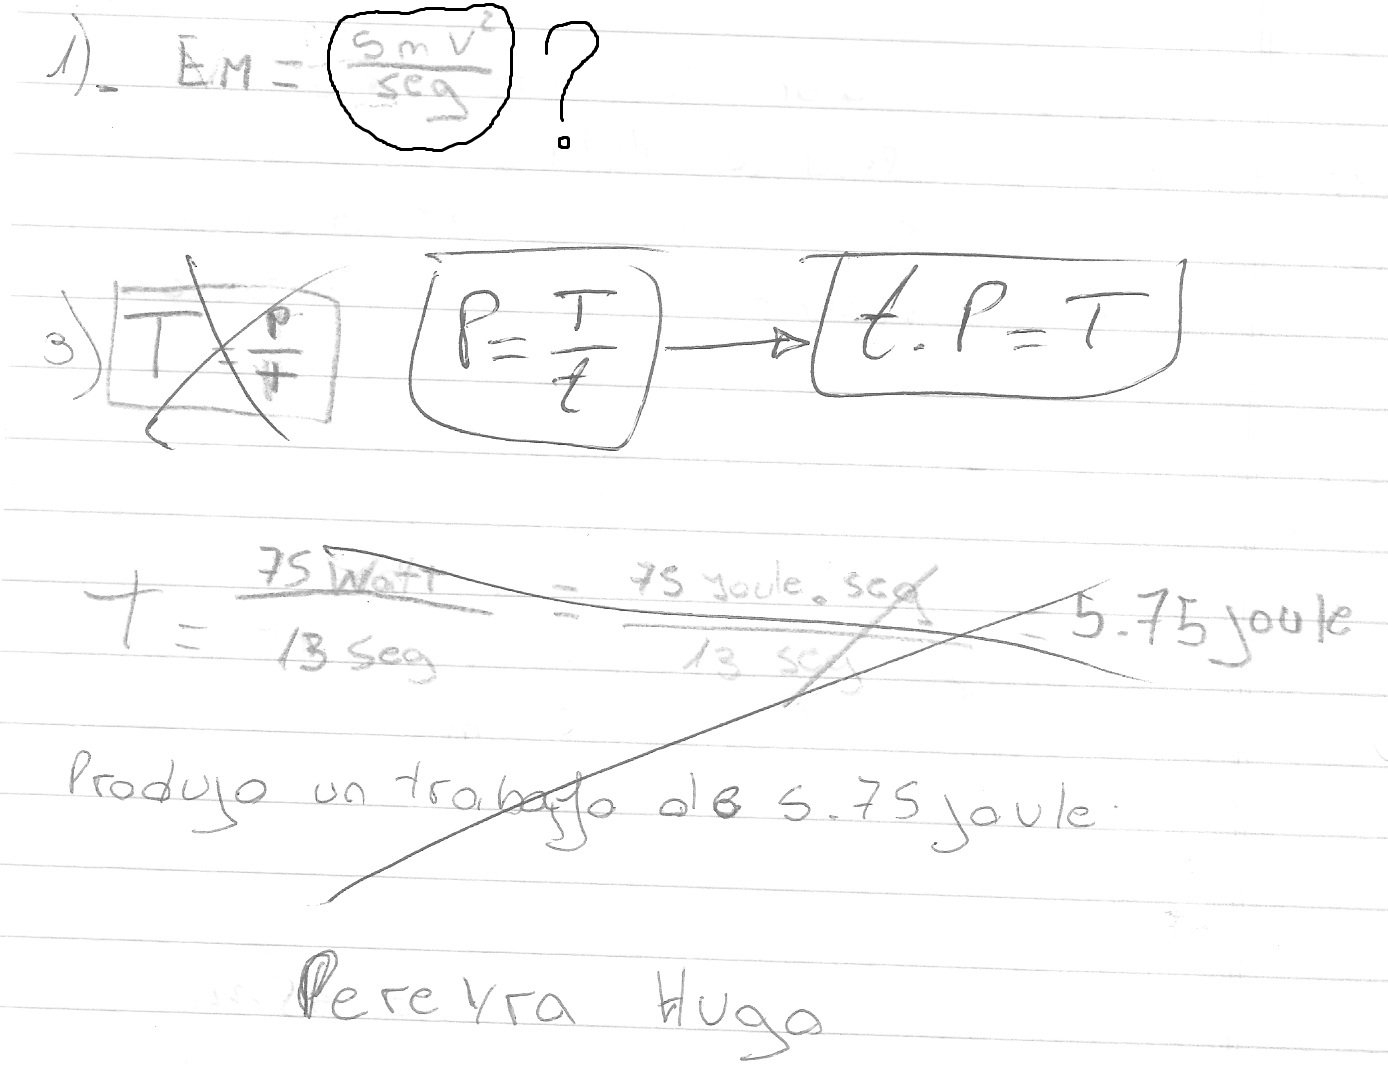 1).- EM = 5 m v² / seg ?
3) T = P / t P = T / t → t . P = T
T = 75 Watt / 13 seg = 75 joule . seg / 13 seg = 5.75 joule
Produjo un trabajo de 5.75 joule.
Pereyra Hugo